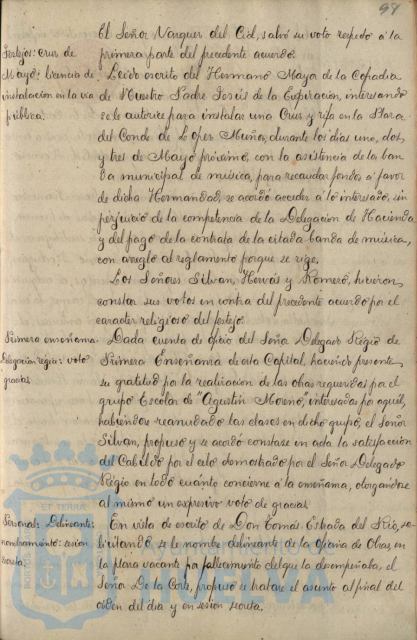 98
El Señor Vazquez del Cid, salvó su voto respecto á la
primera parte del precedente acuerdo.
Festejos: Cruz de
Mayo: licencia de
instalacion en la vía
pública.
Leido escrito del Hermano Mayor de la Cofradia
de Nuestro Padre Jesús de la Expiración, interesando
se le autorice para instalar una Cruz y rifa en la Plaza
del Conde de López Muñoz, durante los dias uno, dos
y tres de Mayo próximo, con la asistencia de la ban
da municipal de música, para recaudar fondos á favor
de dicha Hermandad, se acordó acceder á lo interesado, sin
perjuicio de la competencia de la Delegacion de Hacienda
y del pago de la contrata de la citada banda de música,
con arreglo al reglamento porque se rige.
Los Señores Silvan, Hervás y Romero, hicieron
constar sus votos en contra del precedente acuerdo por el
caracter religioso del festejo.
Primera enseñanza:
Delegacion regia: voto
gracias.
Dada cuenta de oficio del Señor Delegado Regio de
Primera Enseñanza de esta Capital, haciendo presente
su gratitud por la realizacion de las obras requeridas por el
grupo Escolar de "Agustin Moreno", interesadas por aquél,
habiéndose reanudado las clases en dicho grupo, el Señor
Silvan, propuso y se acordó constase en acta la satisfacción
del Cabildo por el celo demostrado por el Señor Delegado
Regio en todo cuanto concierne á la enseñanza, otorgandose
al mismo un expresivo voto de gracias.
Personal: Delineante:
nombramiento: sesion
secreta.
En vista de escrito de Don Tomás Estrada del Rio, so-
licitando se le nombre delineante de la Oficina de Obras, en
la plaza vacante por fallecimiento del que la desempeñaba, el
Señor De la Corte, propuso se tratare el asunto al final del
orden del dia y en sesion secreta.